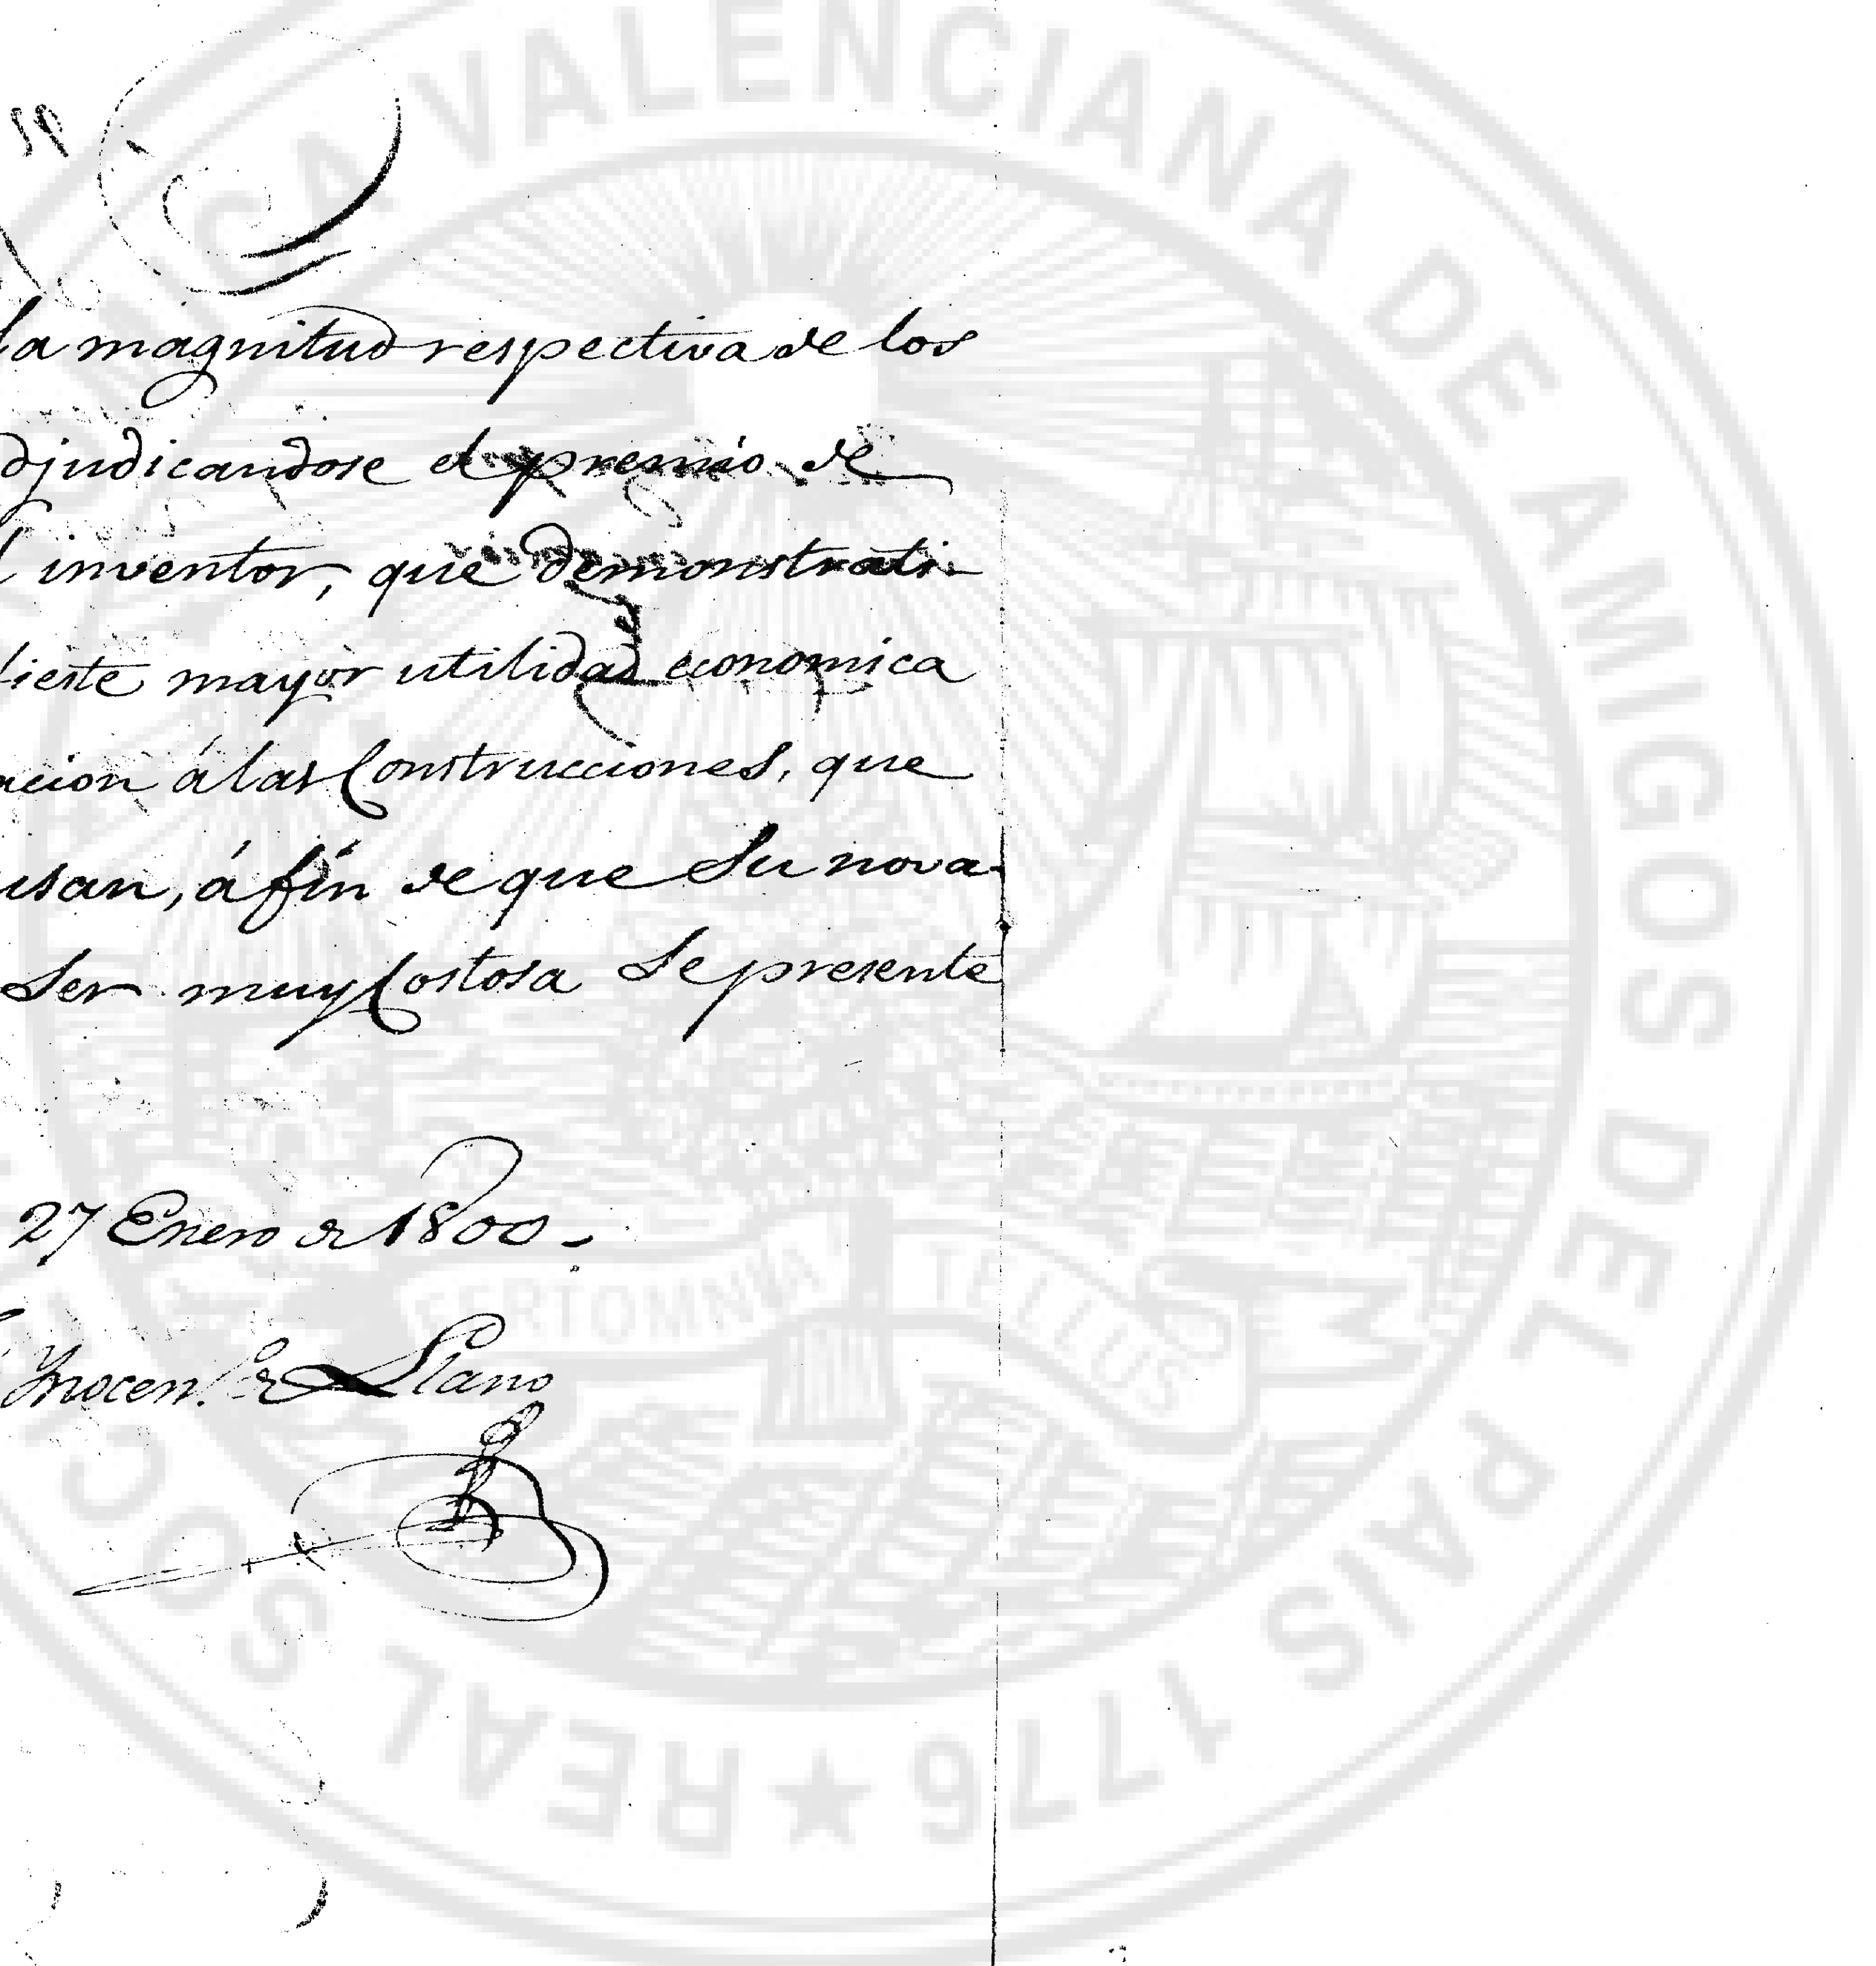 la magnitud respectiva de los
djudicandose el premio de
inventor, que demonstrati-
fieste mayor utilidad economica
acion á las Construcciones, que
usan, á fin de que Su nova-
Ser muy Costosa Se presente
27 Enero de 1800.
Ynocen.e de Llano
REAL SOC ICA VALENCIANA DE AMIGOS DEL PAIS 1776
FERT OMNIA TELLUS